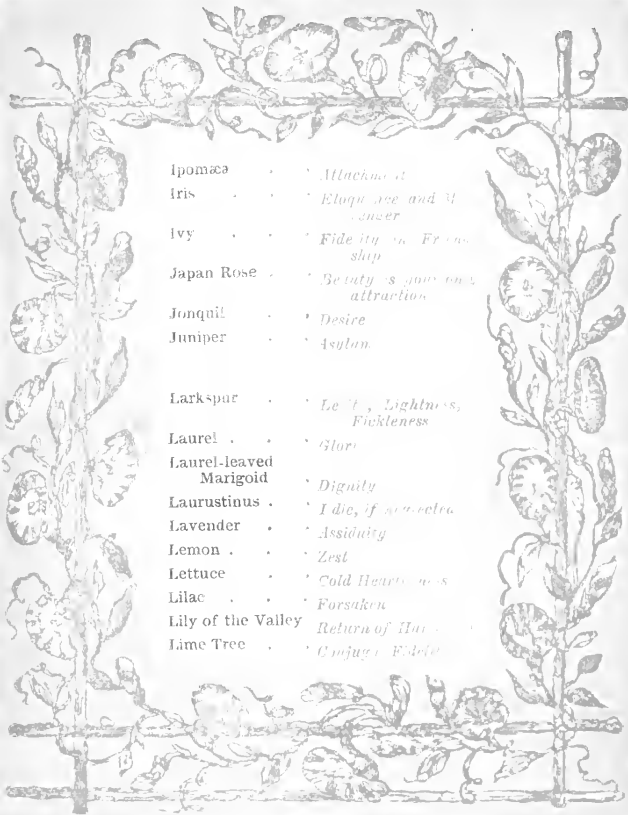 Ipomæa . . Attachment
Iris . . . Eloquence and M
senger
Ivy . . . Fidelity Friend
ship
Japan Rose . . Beauty is your only
attraction
Jonquil . . Desire
Juniper . . Asylum
Larkspur . . Lightness,
Fickleness
Laurel . . . Glory
Laurel-leaved
Marigold . Dignity
Laurustinus . . I die, if neglected
Lavender . . Assiduity
Lemon . . . Zest
Lettuce . . Cold Heartedness
Lilac . . . Forsaken
Lily of the Valley Return of
Lime Tree . . Conjugal Fidelity